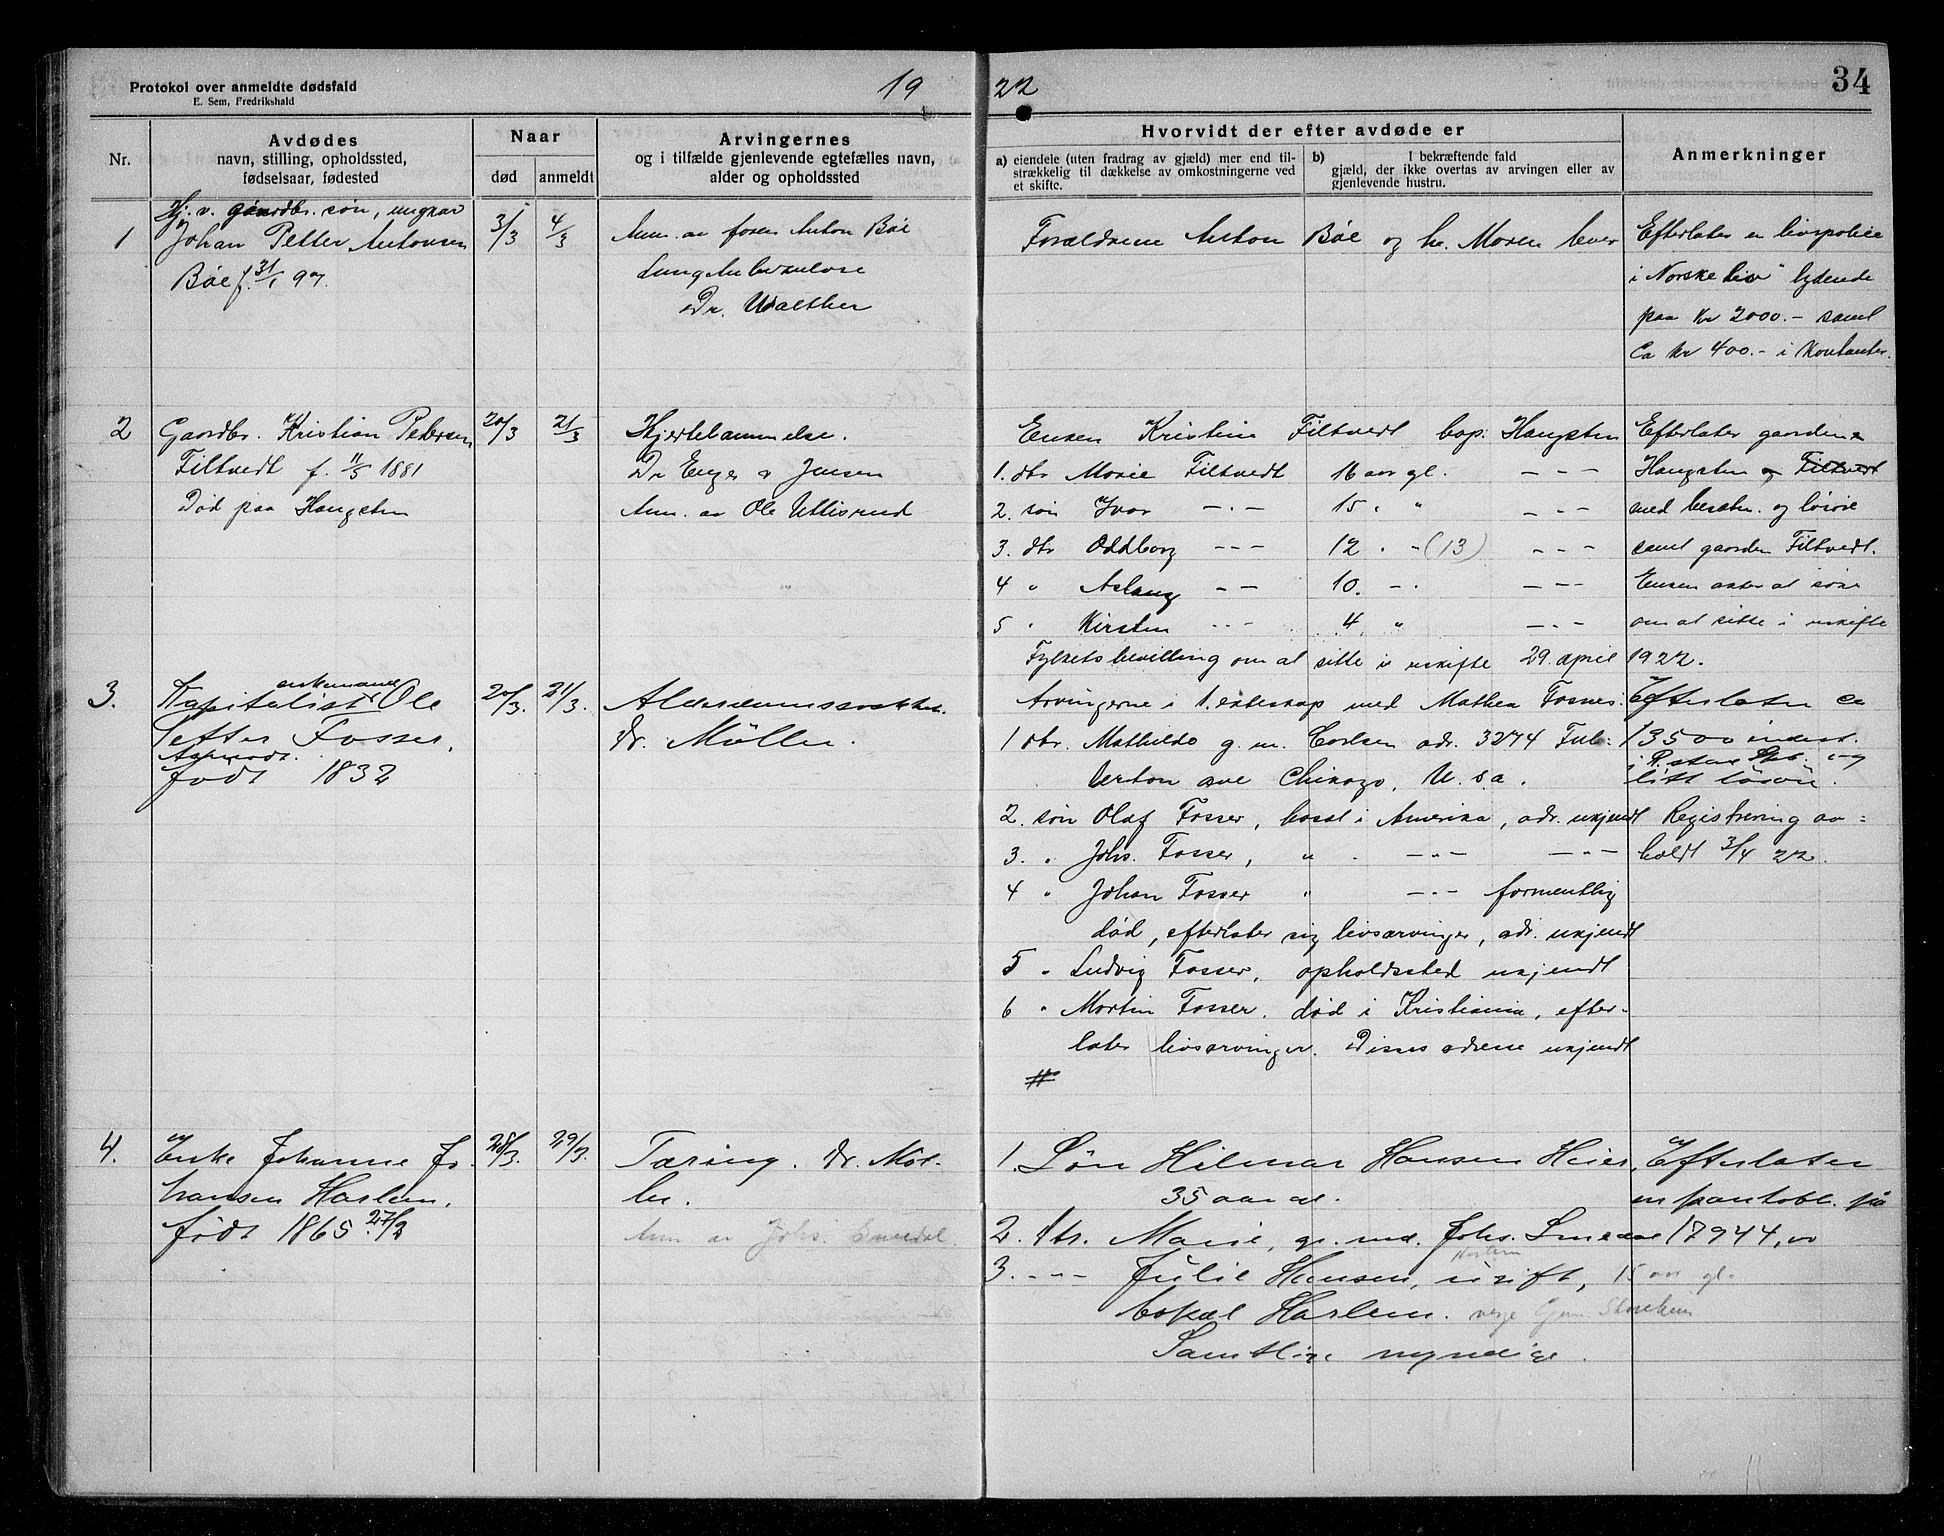 Protokol over anmeldte dødsfald
E. Sem, Fredrikshald
19 22
34
Nr.
Avdødes
navn, stilling, opholdssted,
fødselsaar, fødested
Naar
død
anmeldt
Arvingernes
og i tilfælde gjenlevende egtefælles navn,
alder og opholdssted
Hvorvidt der efter avdøde er
a) eiendele (uten fradrag av gjæld) mer end til-
strækkelig til dækkelse av omkostningerne ved
et skifte.
b) I bekræftende fald
gjæld, der ikke overtas av arvingen eller av
gjenlevende hustru.
Anmerkninger
1
Hj. v. gaardbr. søn, ungkar
Johan Petter Antonsen
Bøe f. 31/1 97.
3/3
4/3
Anm. av faren Anton Bøe
Lungetuberkulose
Dr. Walther
Forældrene Anton Bøe og h. Maren lever
Efterlater en livspolice
i "Norske Liv" lydende
paa Kr 2000.- samt
Ca kr 400.- i Kontanter.
2
Gaardbr. Kristian Petersen
Filtvedt f. 11/5 1881
Død paa Haugsten
20/3
21/3
Hjertelammelse.
Dr Enger & Jensen
Anm. av Ole Uttisrud
Enken Kristine Filtvedt bop. Haugsten
1. dtr Marie Filtvedt 16 aar gl. - - -
2. søn Ivar - " - 15 " " - - -
3. dtr Oddborg - - - 12 " " (13) - - -
4 " Aslaug - - 10. - " - - -
5 " Kirsten - - - 4 " - - -
Fylkets bevilling om at sitte i uskifte 29. april 1922.
Efterlater gaarden
Haugsten og Filtvedt
med besætn. og løsøre
samt gaarden Filtvedt.
Enken akter at søke
om at sitte i uskifte
3.
Kapitalist enkemand Ole
Petter Fosser,
født 1832
20/3.
21/3.
Alderdomssvakhet.
Dr. Møller.
Arvingerne i 1. ekteskap med Mathea Fosser.
1 dtr. Mathilde g. m. Carlsen adr. 3274 Ful-
lerton ave Chikago, U. s. a.
2. søn Olaf Fosser, bosat i Amerika, adr. ukjendt
3. " Johs. Fosser, " - " - - " -
4 " Johan Fosser " - " - formentlig
død, efterlater sig livsarvinger, adr. ukjendt
5 " Ludvig Fosser, opholdssted ukjendt
6 " Martin Fosser. død i Kristiania, efter-
later livsarvinger. Disses adresse ukjendt
Efterlater ca
13500 indest.
litt løsøre.
Registrering av-
holdt 3/4 22.
4.
Enke Johanne Jo-
hansen Harlem,
født 1865 27/2
28/3.
29/3.
Tæring. Dr. Møl-
ler.
Anm av Johs. Smedal.
1. Søn Hilmar Hansen Heier,
35 aar gl.
2. dtr. Marie, g. m. Johs. Smedal
3. - - - Julie Hansen, ugift, 15 aar gl.
bopæl Harlem. verge Gjem Storehem
Samtlige myndige.
Efterlater
en pantobl. på
17944,00